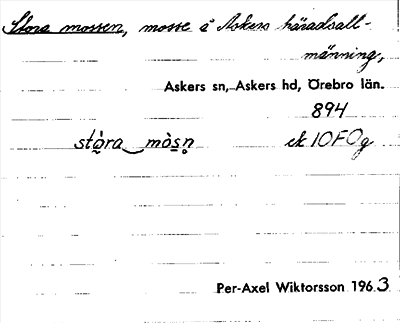 Stora mossen, mosse å Askers häradsall-
männing,
Askers sn, Askers hd, Örebro län.
894
stó̱ra‿mòs̱ṇ ek 10F0g
Per-Axel Wiktorsson 1963